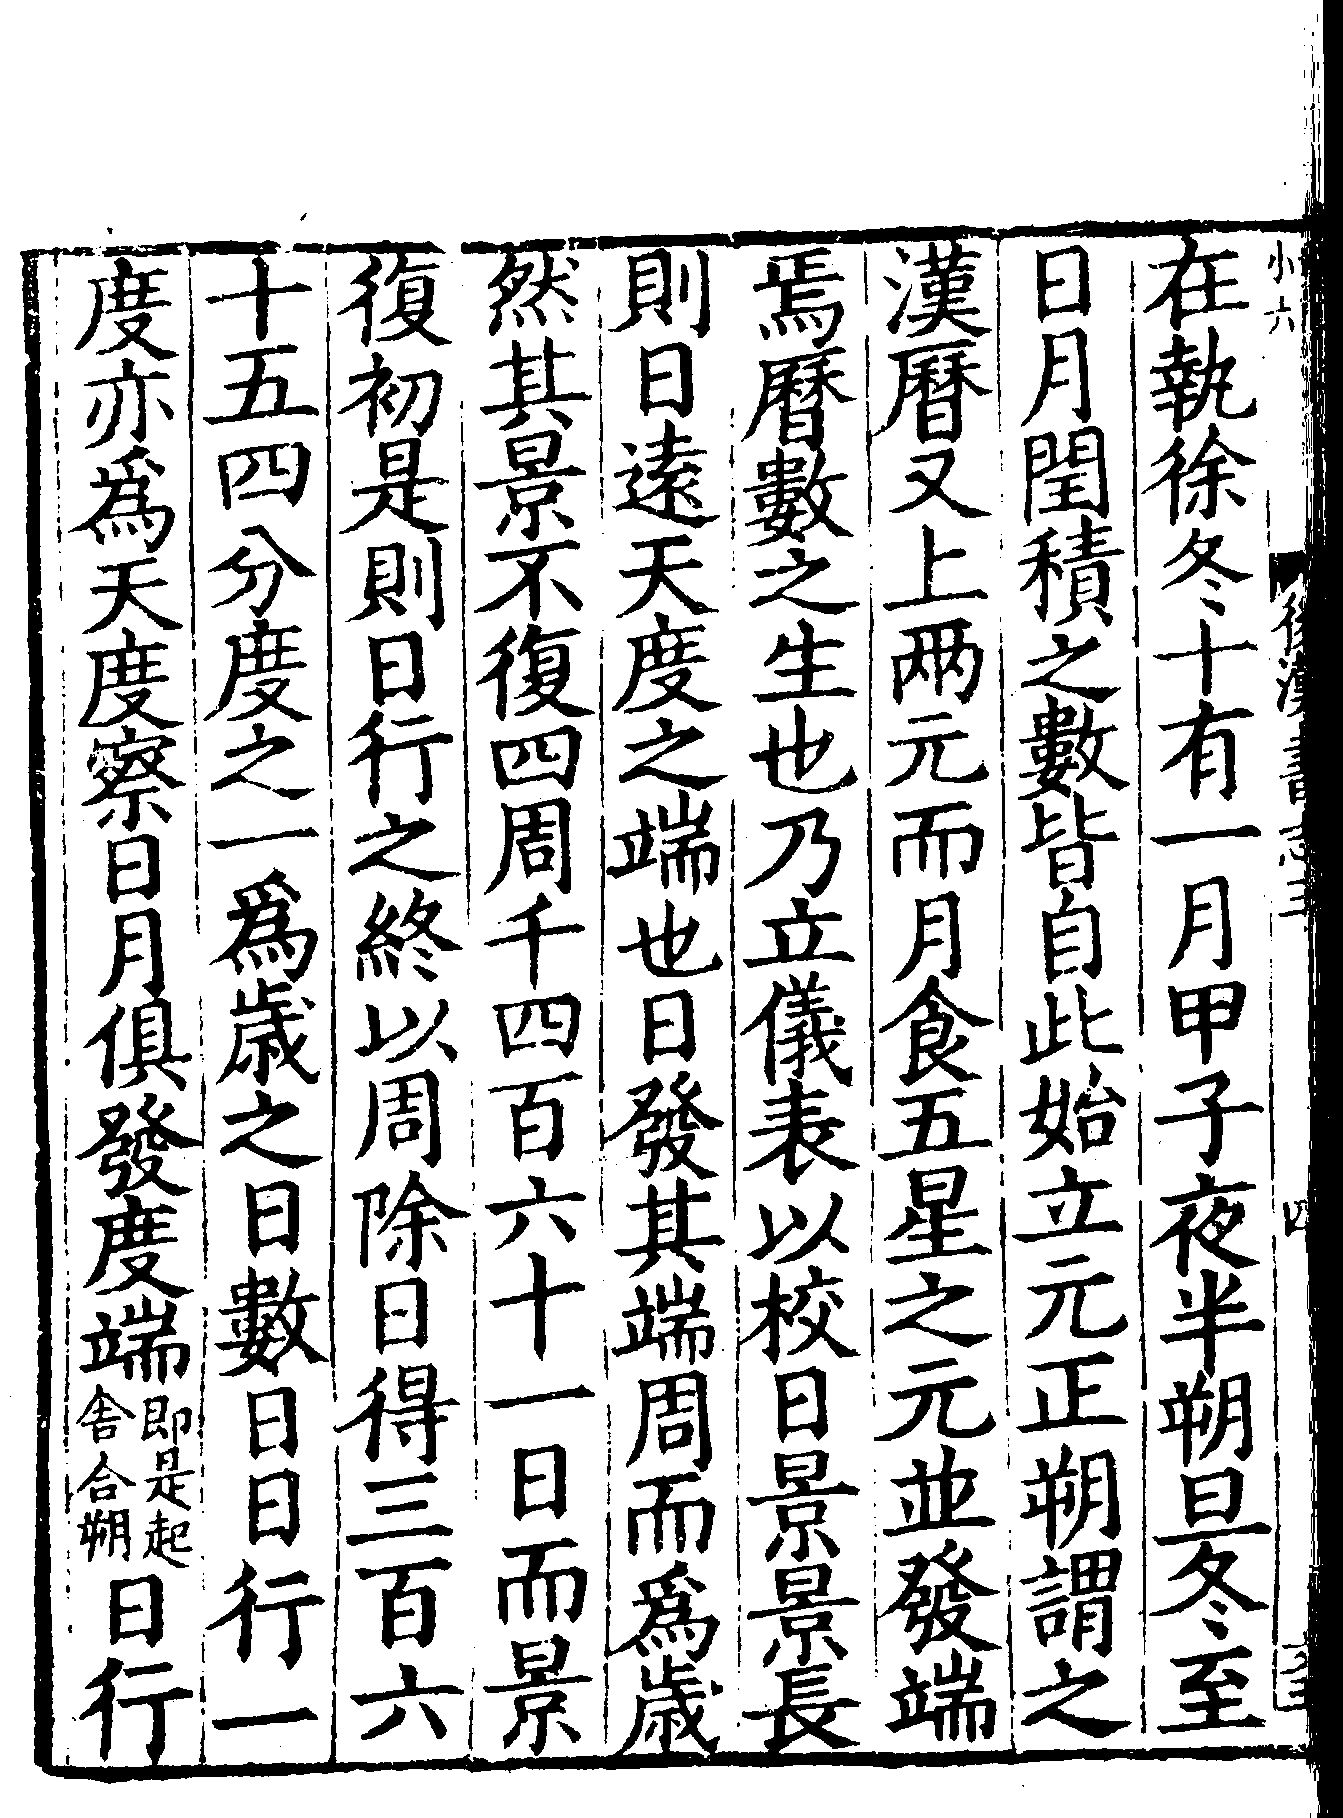 小六
後漢書志三
四
在執徐冬十有一月甲子夜半朔旦冬至
日月閏積之數皆自此始立元正朔謂之
漢曆又上兩元而月食五星之元並發端
焉曆數之生也乃立儀表以校日景景長
則日遠天度之端也日發其端周而爲歳
然其景不復四周千四百六十一日而景
復初是則日行之終以周除日得三百六
十五四分度之一爲歳之日數日日行一
度亦爲天度察日月俱發度端
即是起
舎合朔
日行